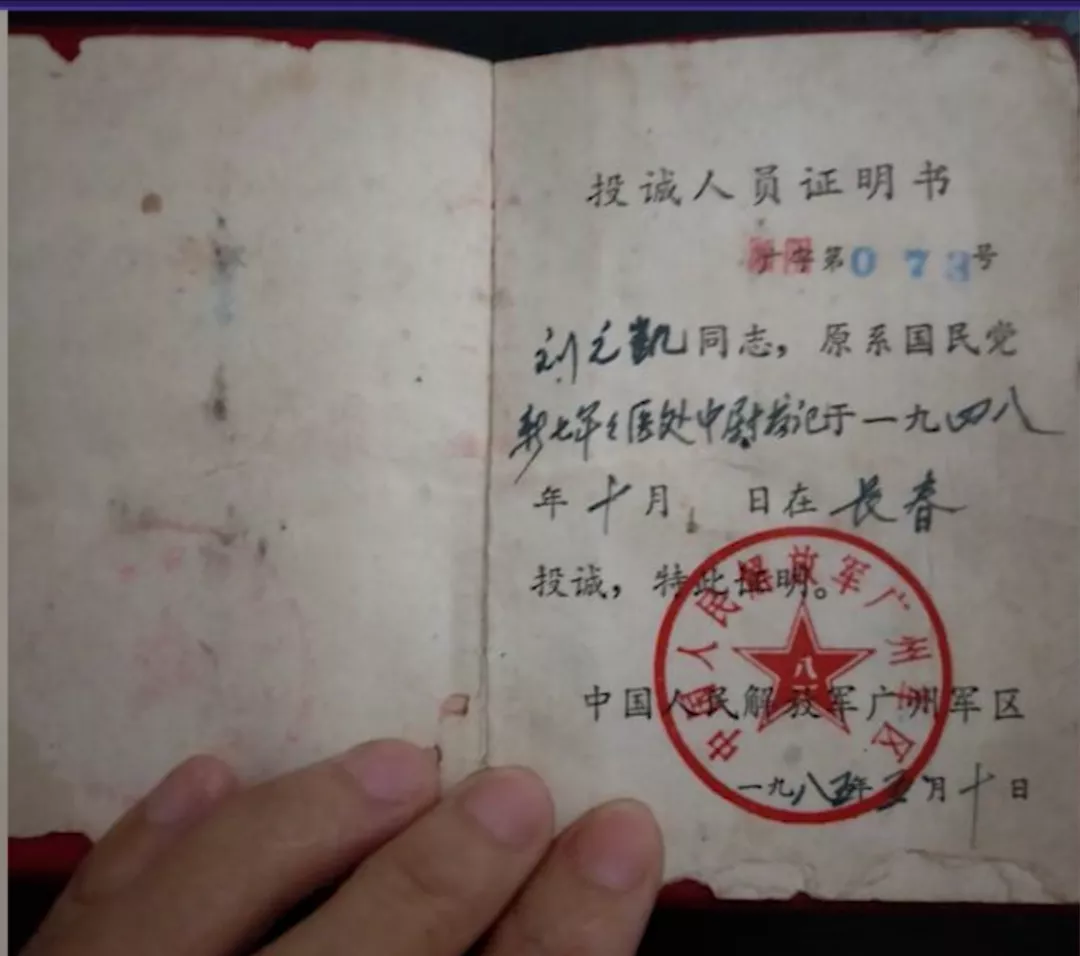 投诚人员证明书
字第073号
刘元凯同志，原系国民党
新七军々医处中尉书记于一九四八
年十月 日在长春
投诚，特此证明。
中国人民解放军广州军区
八一
中国人民解放军广州军区
一九八五年五月十日